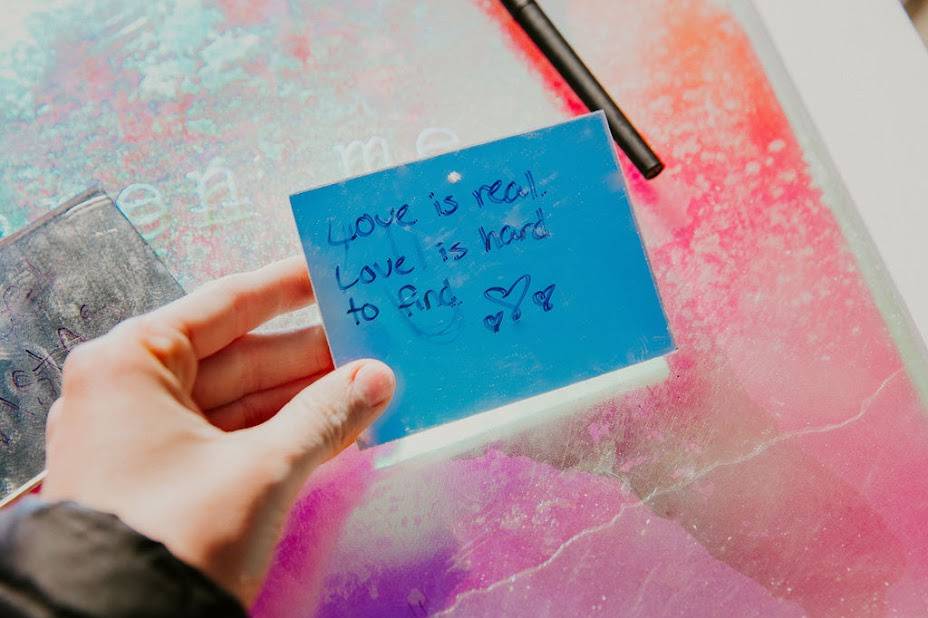 me
Love is real.
Love is hard
to find